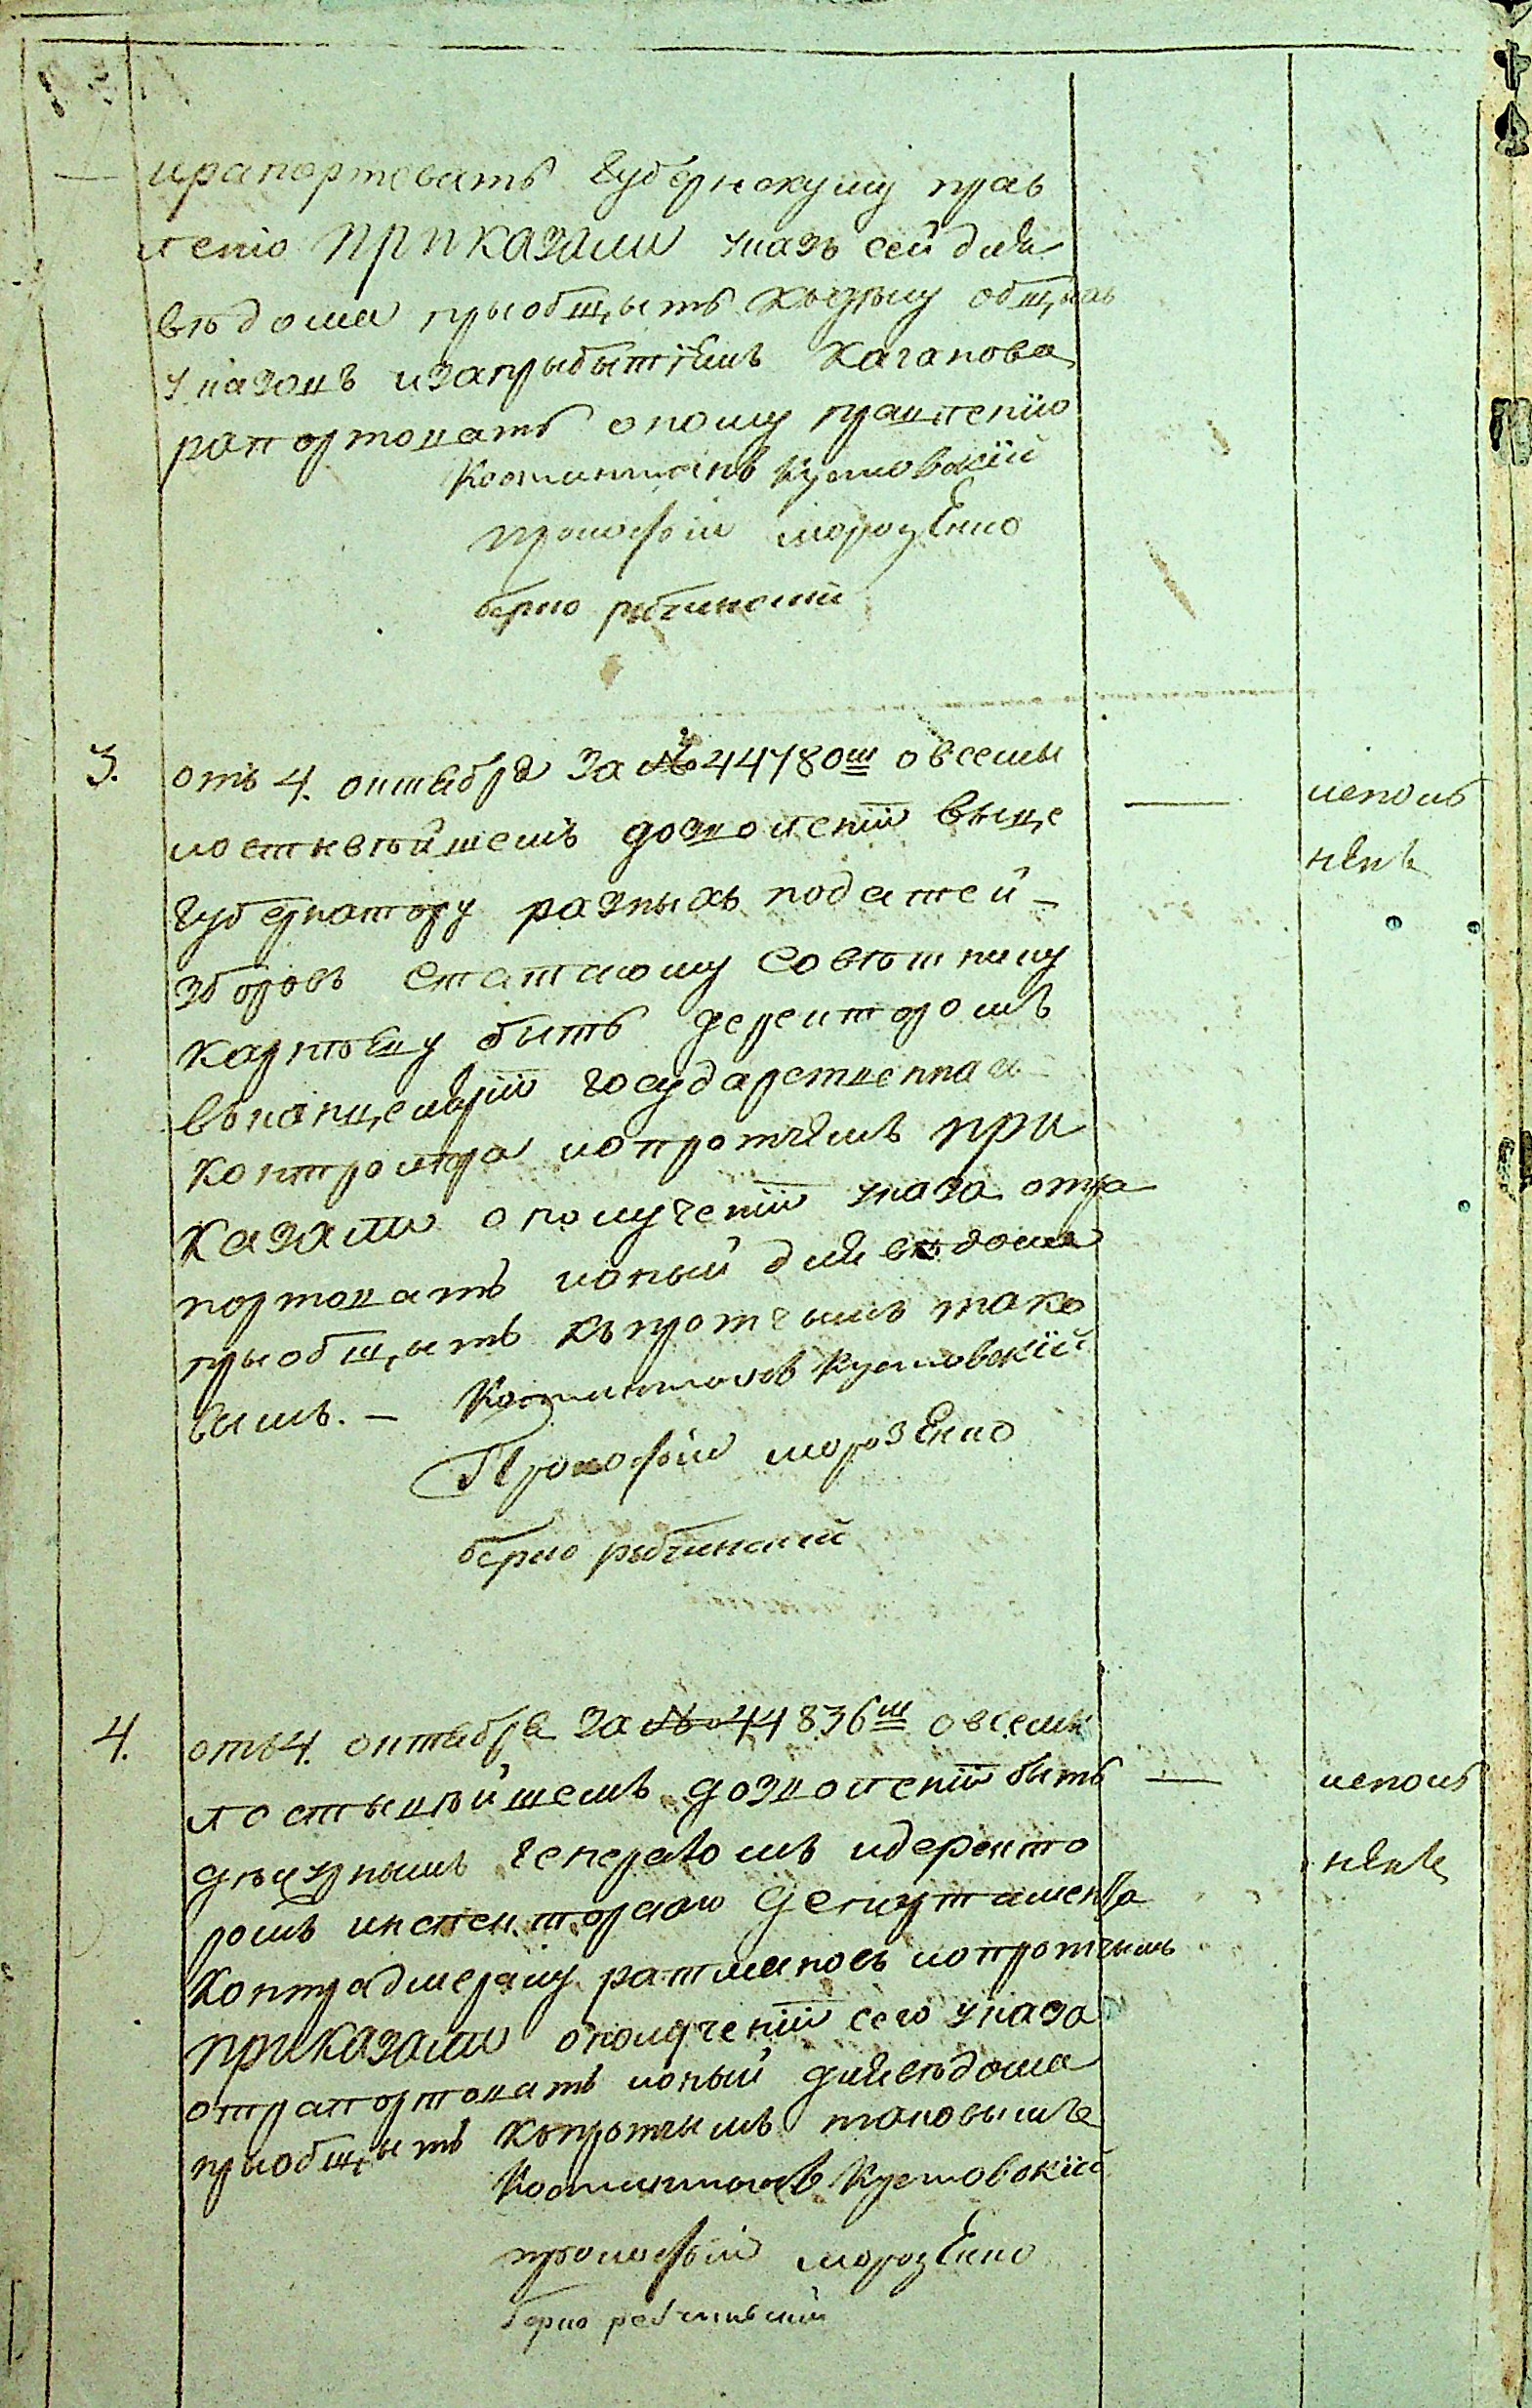 ирапортовать губернскому прав
ленію приказали указъ сей для
вѣдома приобщыть къделу общихъ
указовъ изаприбытіемъ Каганова
рапортовать оному правленію
Костантинъ Кузмовскій
Прокофій морозенко
берко рабинскій
3. отъ 4. октября За № 44780м овсемы
лостивѣйшемъ дозволеніи выце
губернатору разныхъ податей
зборовъ статскому советнику
карпову быть деректоромъ
вканцелярій государственнаго
контролера ипротчемъ при
казали ополученіи указа отра
портовать ионый для вѣдома
приобщить къпротчымъ тако
вымъ. —
Костантинъ Кузмовскій
Прокофій морозенко
берко рабинскій
исполъ
нено
4. отъ 4. октября За № 44836м овсеми
лостывѣйшемъ дозволеніи быть
дежурнымъ генераломъ идеректо
ромъ инспекторского департамента
Контрадмералу ратманову ипротчемъ
приказали ополученіи сего указа
отрапортовать ионый длявѣдома
приобщить къпротчымъ таковымъ
Костантинъ Кузмовскій
прокофій морозенко
берко рабинскій
исполъ
нено